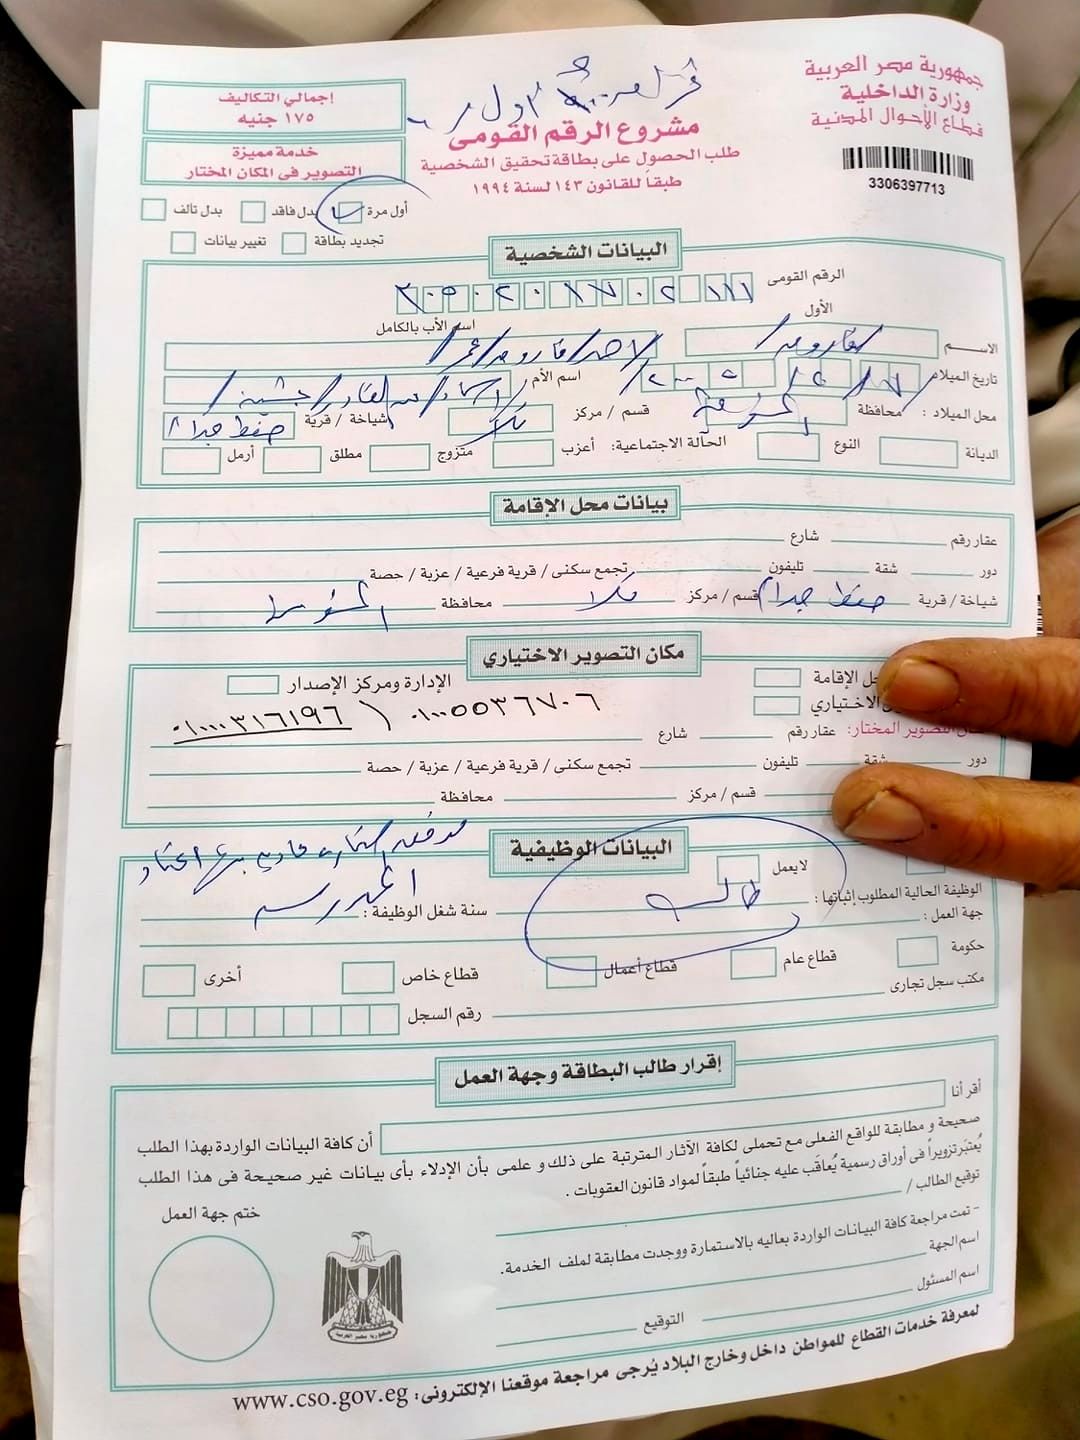 جمهورية مصر العربية
وزارة الداخلية
قطاع الأحوال المدنية
3306397713
اول
مشروع الرقم القومى
طلب الحصول على بطاقة تحقيق الشخصية
طبقاً للقانون ١٤٣ لسنة ١٩٩٤
إجمالي التكاليف
١٧٥ جنيه
خدمة مميزة
التصوير فى المكان المختار
أول مرة بدل فاقد بدل تالف
تجديد بطاقة تغيير بيانات
البيانات الشخصية
الرقم القومى
الأول اسم الأب بالكامل
الاســم فاروق / احمد / فاروق / عمر
تاريخ الميلاد ١٧ / ٢ / ٢٠٠٥ اسم الأم
محل الميلاد : محافظة المنوفية قسم / مركز تلا شياخة / قرية صفط جدام
الديانة النوع الحالة الاجتماعية: أعزب متزوج مطلق أرمل
بيانات محل الإقامة
عقار رقم شارع
دور شقة تليفون تجمع سكنى / قرية فرعية / عزبة / حصة
شياخة / قرية صفط جدام قسم / مركز تلا محافظة المنوفية
مكان التصوير الاختياري
الإقامة الإدارة ومركز الإصدار
الاختياري ٠١٠٠٥٥٣٦٧٠٦ \ ٠١٠٠٠٣١٦١٩٦
التصوير المختار: عقار رقم شارع
دور شقة تليفون تجمع سكنى / قرية فرعية / عزبة / حصة
قسم / مركز محافظة
البيانات الوظيفية
لا يعمل
المدرسة
الوظيفة الحالية المطلوب إثباتها : طالب سنة شغل الوظيفة :
جهة العمل :
حكومة قطاع عام قطاع أعمال قطاع خاص أخرى
مكتب سجل تجارى رقم السجل
إقرار طالب البطاقة وجهة العمل
أقر أنا أن كافة البيانات الواردة بهذا الطلب
صحيحة و مطابقة للواقع الفعلى مع تحملى لكافة الآثار المترتبة على ذلك و علمى بأن الإدلاء بأى بيانات غير صحيحة فى هذا الطلب
يُعتبَر تزويراً فى أوراق رسمية يُعاقَب عليه جنائياً طبقاً لمواد قانون العقوبات .
توقيع الطالب /
ختم جهة العمل
- تمت مراجعة كافة البيانات الواردة بعاليه بالاستمارة ووجدت مطابقة لملف الخدمة.
اسم الجهة
اسم المسئول التوقيع
جمهورية مصر العربية
لمعرفة خدمات القطاع للمواطن داخل وخارج البلاد يُرجى مراجعة موقعنا الإلكترونى: www.cso.gov.eg